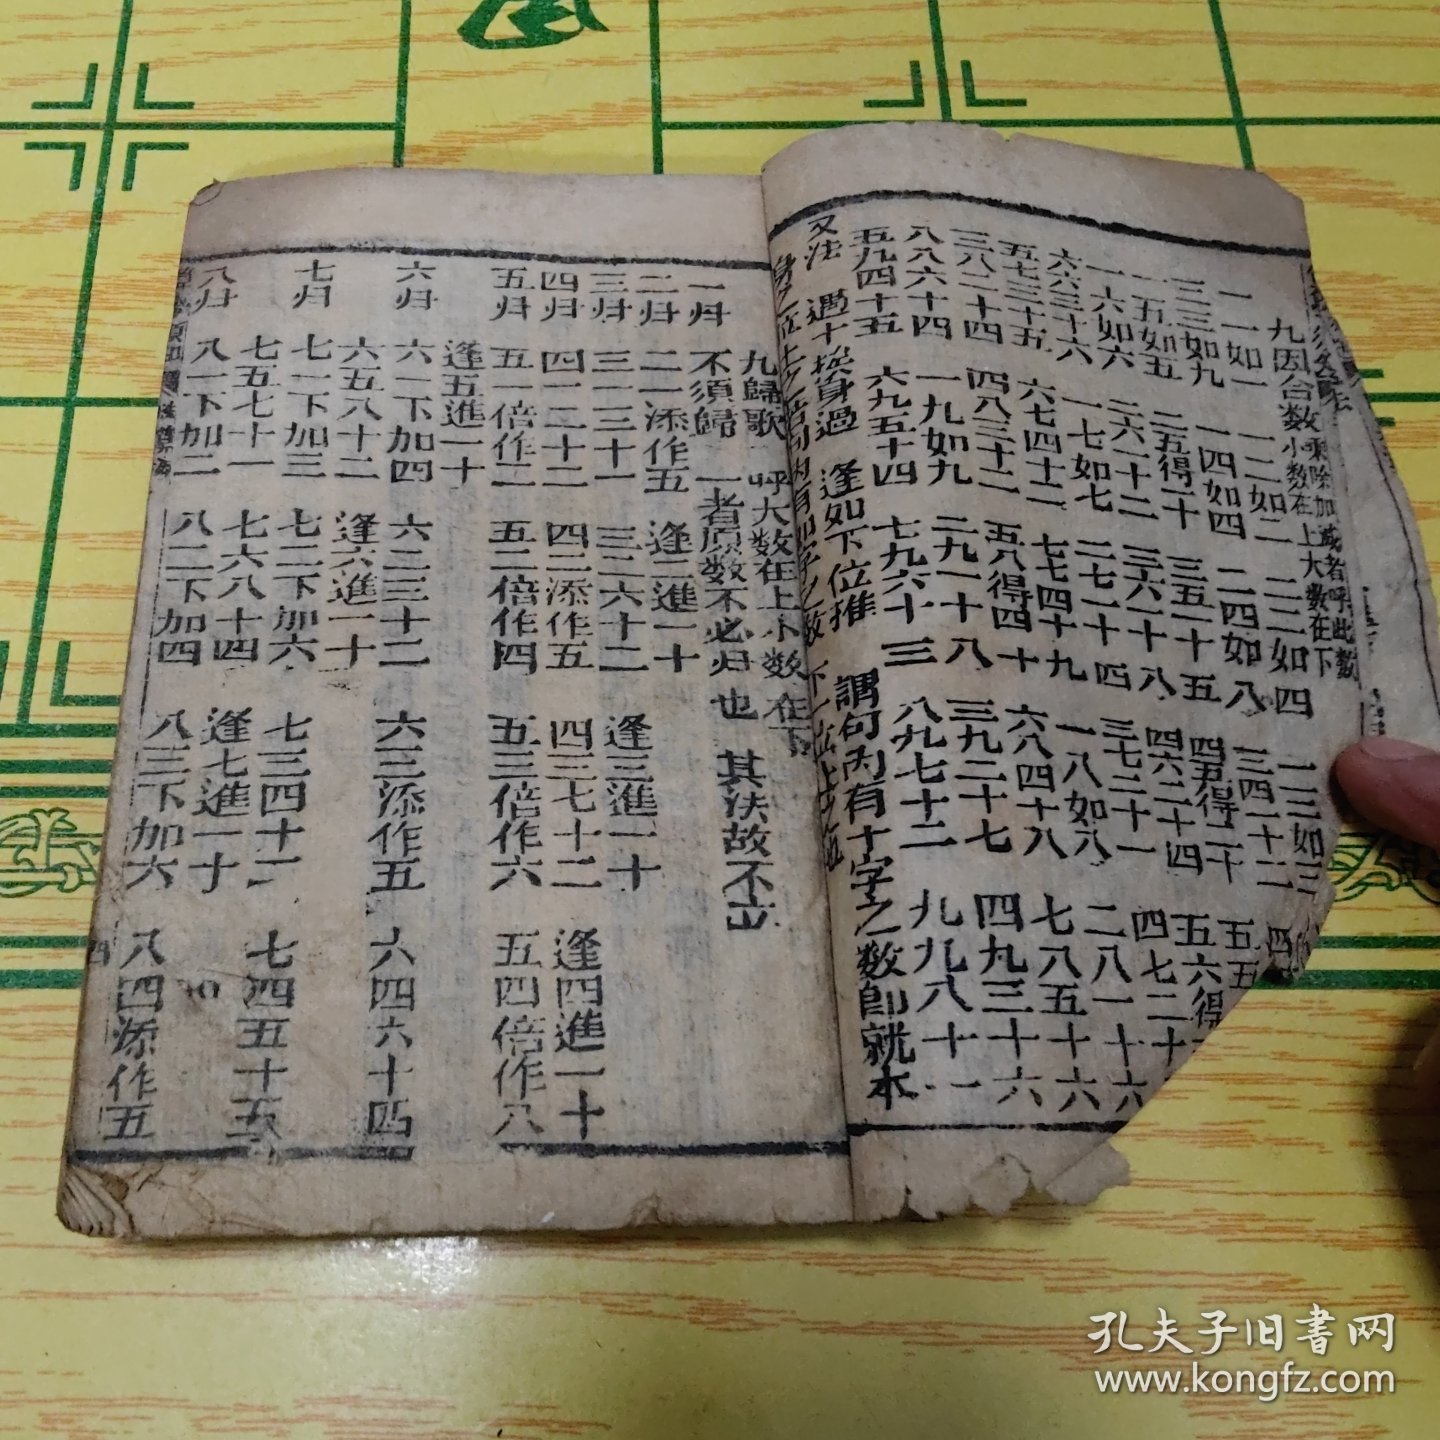 九因合数 乘除加减者呼此数
小数在上大数在下
一一如一 一二如二 二二如四 一三如三
三三如九 一四如四 二四如八 三四一十二
一五如五 二五得一十 三五一十五 四五得二十 五五
一六如六 二六一十二 三六一十八 四六二十四 五六得
六六三十六 一七如七 二七一十四 三七二十一 四七二十
五七三十五 六七四十二 七七四十九 一八如八 二八一十六
三八二十四 四八三十二 五八得四十 六八四十八 七八五十六
八八六十四 一九如九 二九一十八 三九二十七 四九三十六
五九四十五 六九五十四 七九六十三 八九七十二 九九八十一
又法 過十挨身過 逢如下位推 謂句内有十字之数即就本
九歸歌 呼大数在上小数在下
一归 不須歸 一者原数不必归也 其法故不立
二归 二一添作五 逢二進一十
三归 三一三十一 三二六十二 逢三進一十
四归 四一二十二 四二添作五 四三七十二 逢四進一十
五归 五一倍作二 五二倍作四 五三倍作六 五四倍作八
逢五進一十
六归 六一下加四 六二三十二 六三添作五 六四六十四
六五八十二 逢六進一十
七归 七一下加三 七二下加六 七三四十二 七四五十五
七五七十一 七六八十四 逢七進一十
八归 八一下加二 八二下加四 八三下加六 八四添作五
四
孔夫子旧书网
www.kongfz.com